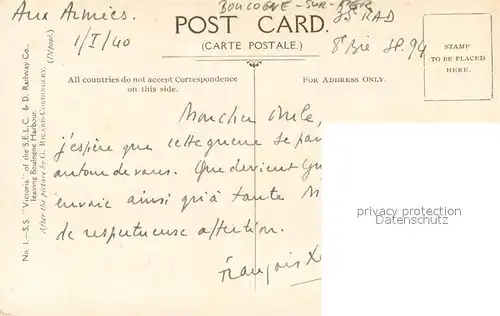 Aux Armées.
1/I/40
BOULOGNE-SUR-MER
35 RAD
8e Bie SP. 94
POST CARD.
(CARTE POSTALE.)
STAMP
TO BE PLACED
HERE.
All countries do not accept Correspondence
on this side.
FOR ADDRESS ONLY.
No. 1.—S.S. "Victoria" of the S.E., L.C. & D. Railway Co.
leaving Boulogne Harbour.
After the picture by G. RICARD-CORDINGLEY. (Déposé)
Mon cher oncle,
j'espère que cette guerre se
autour de vous. Que devient
envoie ainsi qu'à tante
de respectueuse affection.
François
privacy protection
Datenschutz